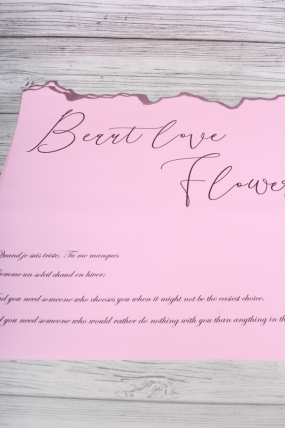 Berrt love
Flower
Quand je suis triste, Tu me manques
Comme un soleil chaud en hiver:
you need someone who chooses you when it might not be the easiest choice.
you need someone who would rather do nothing with you than anything in